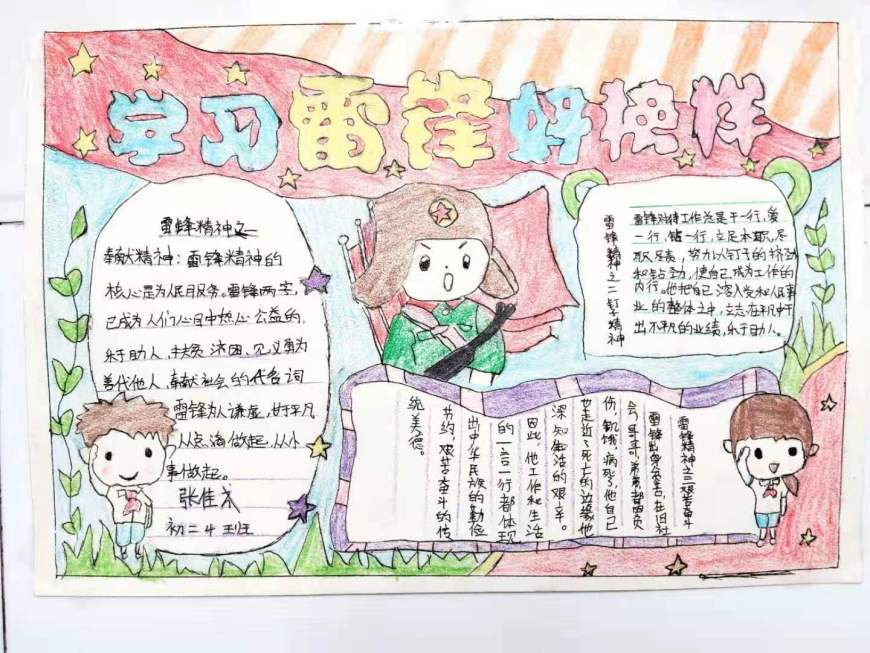 学习雷锋好榜样
雷锋精神之一
奉献精神：雷锋精神的
核心是为人民服务。雷锋两字，
已成为人们心目中热心公益的，
乐于助人、扶贫济困、见义勇为
善代他人、奉献社会的代名词
雷锋为人谦虚，甘于平凡
从点滴做起，从小
事做起。
张佳
初二4班
雷锋精神之二 钉子精神
雷锋对待工作总是干一行，爱
一行，钻一行，立足本职，尽
职尽责，努力以钉子的挤劲
和钻劲，使自己成为工作的
内行。他把自己溶入党和人民事
业的整体之中，立志在平凡中干
出不凡的业绩，乐于助人。
雷锋精神之三艰苦奋斗
雷锋出身贫苦，在旧社
会哥哥、弟弟都因负
伤，饥饿，病死了，他自己
也走近了死亡的边缘他
深知生活的艰辛。
因此，他工作和生活
的一言一行都体现
出中华民族的勤俭
节约，艰苦奋斗的传
统美德。